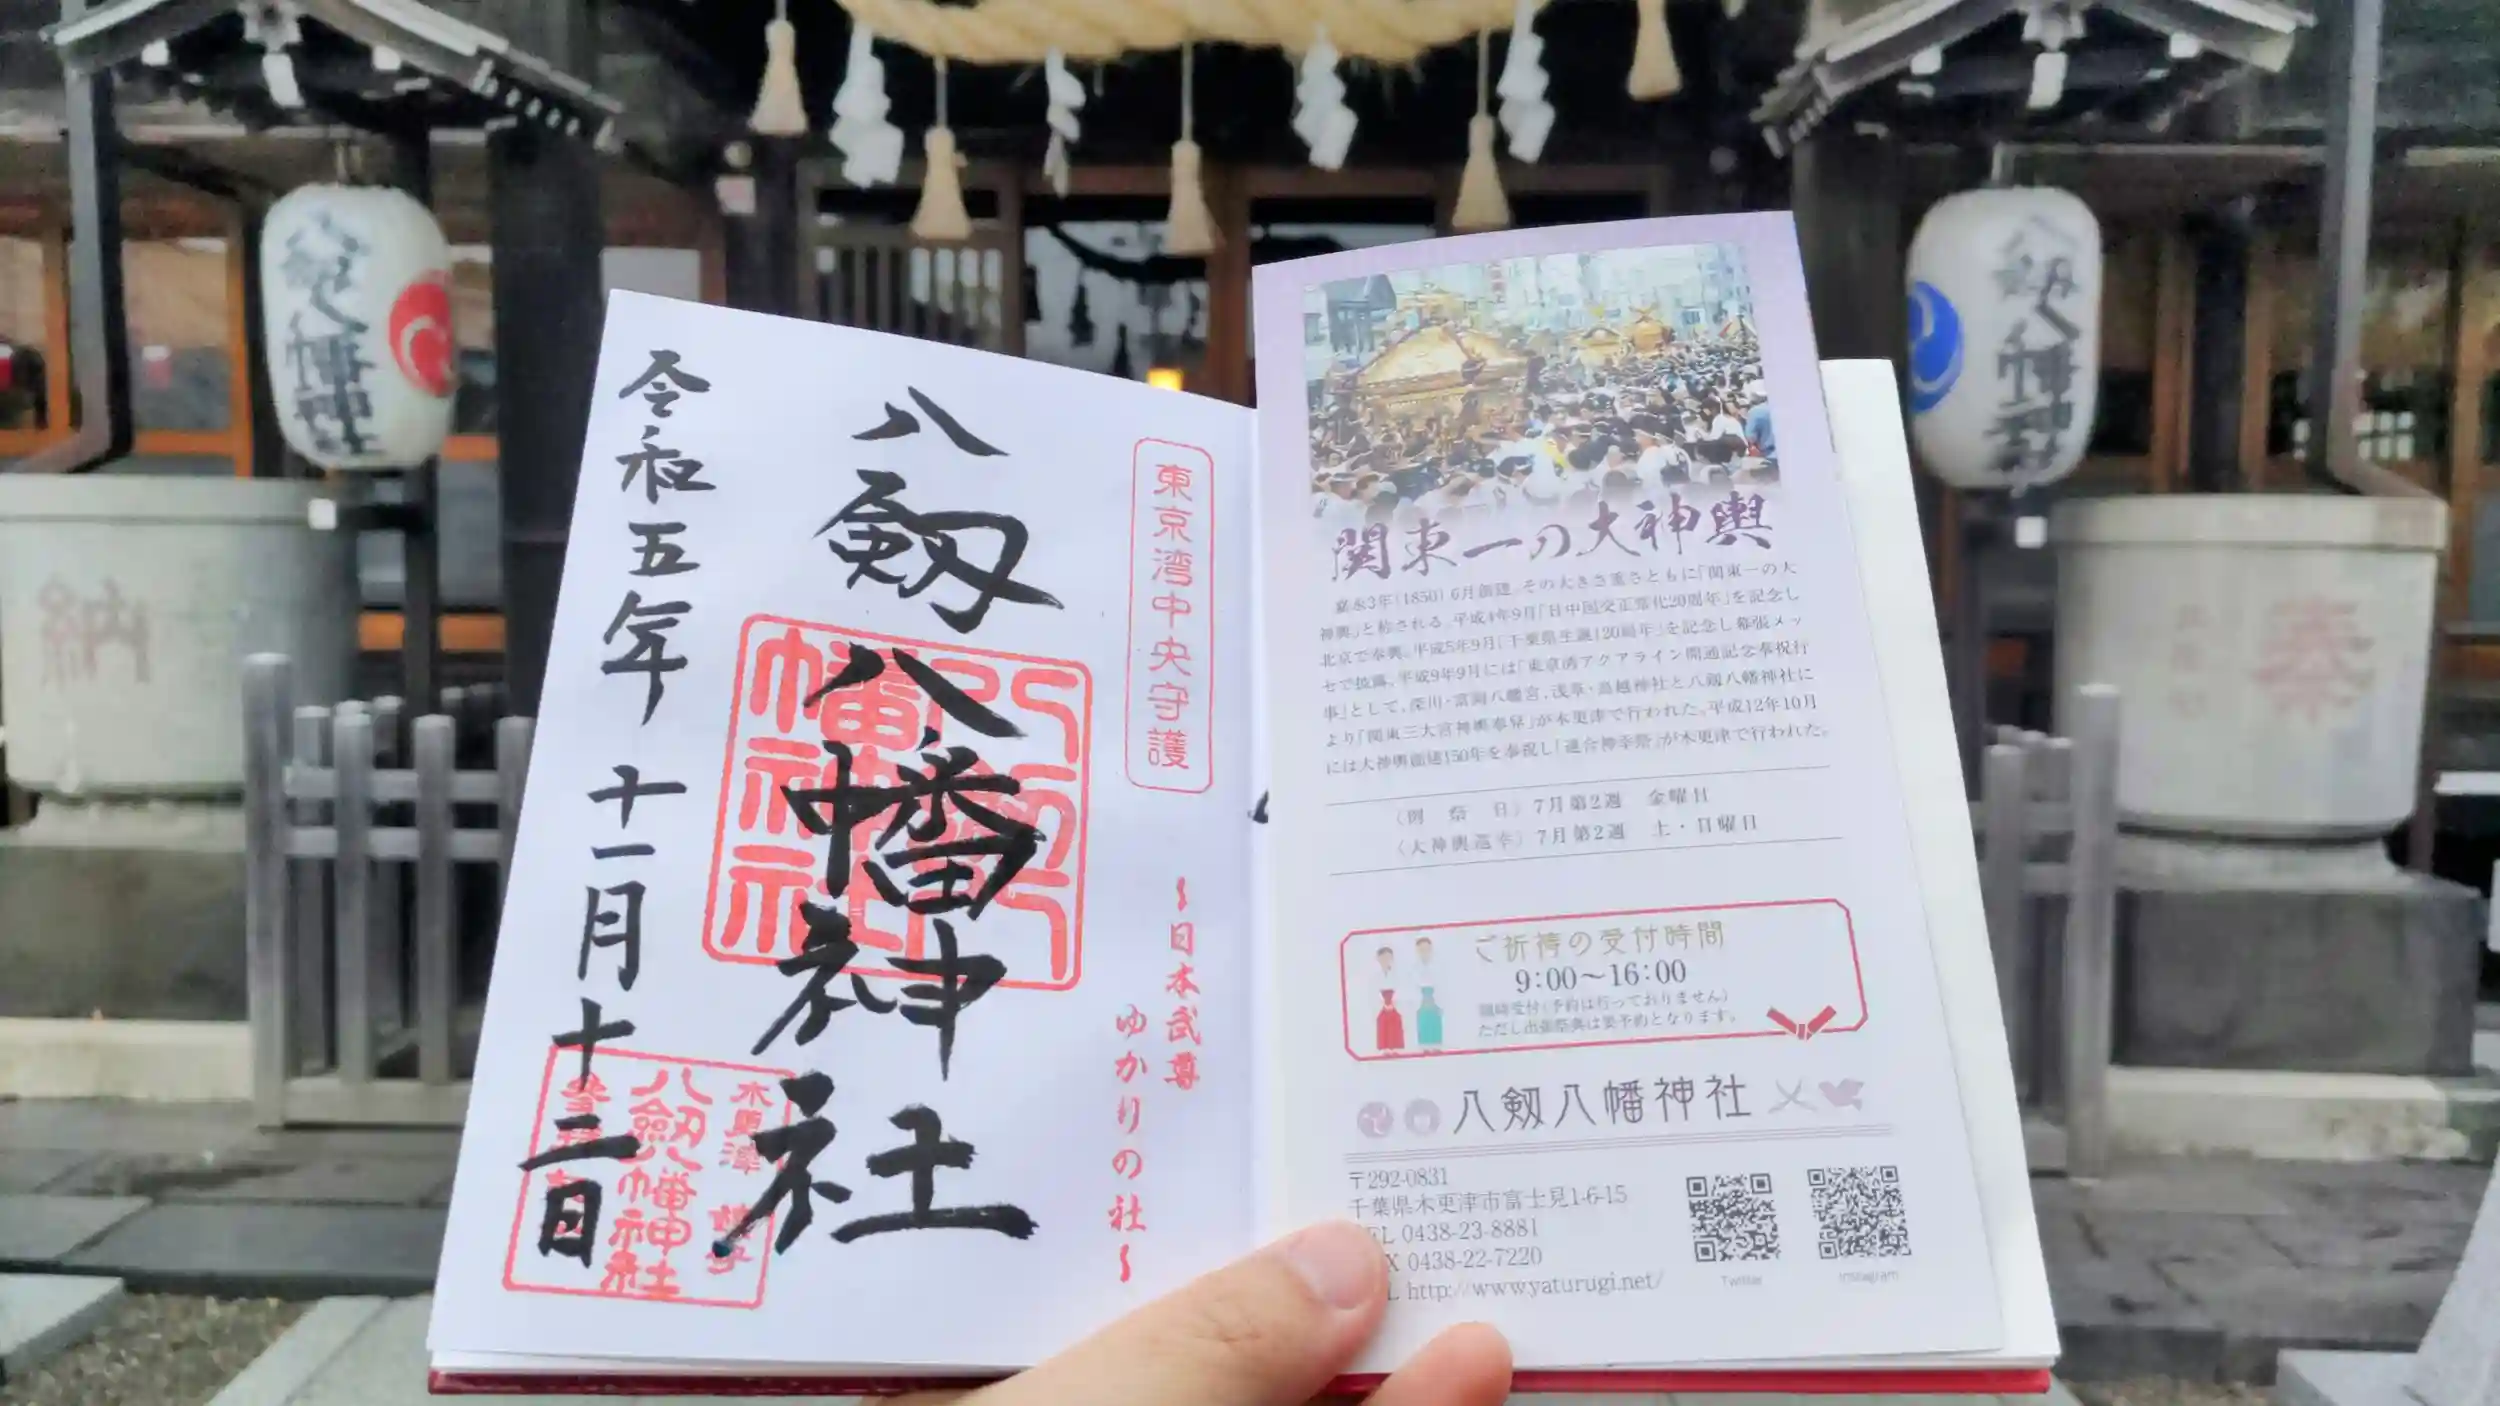 八剱八幡神社
八剱八幡神社
納
奉
東京湾中央守護
八剱八幡神社
令和五年 十一月十二日
~日本武尊
ゆかりの社~
木更津
八剱八幡神社
関東一の大神輿
嘉永3年(1850)6月創建。その大きさ重さともに「関東一の大
神輿」と称される。平成4年9月「日中国交正常化20周年」を記念し
北京で奉輿。平成5年9月「千葉県生誕120周年」を記念し幕張メッ
セで披露。平成9年9月には「東京湾アクアライン開通記念奉祝行
事」として、深川・富岡八幡宮、浅草・鳥越神社と八剱八幡神社に
より「関東三大宮神輿奉舁」が木更津で行われた。平成12年10月
には大神輿創建150年を奉祝し「連合神幸祭」が木更津で行われた。
〈例 祭 日〉7月第2週 金曜日
〈大神輿巡幸〉7月第2週 土・日曜日
ご祈祷の受付時間
9:00～16:00
随時受付(予約は行っておりません)
ただし出張祭典は要予約となります。
八剱八幡神社
〒292-0831
千葉県木更津市富士見1-6-15
EL 0438-23-8881
X 0438-22-7220
L http://www.yaturugi.net/
Twitter
Instagram